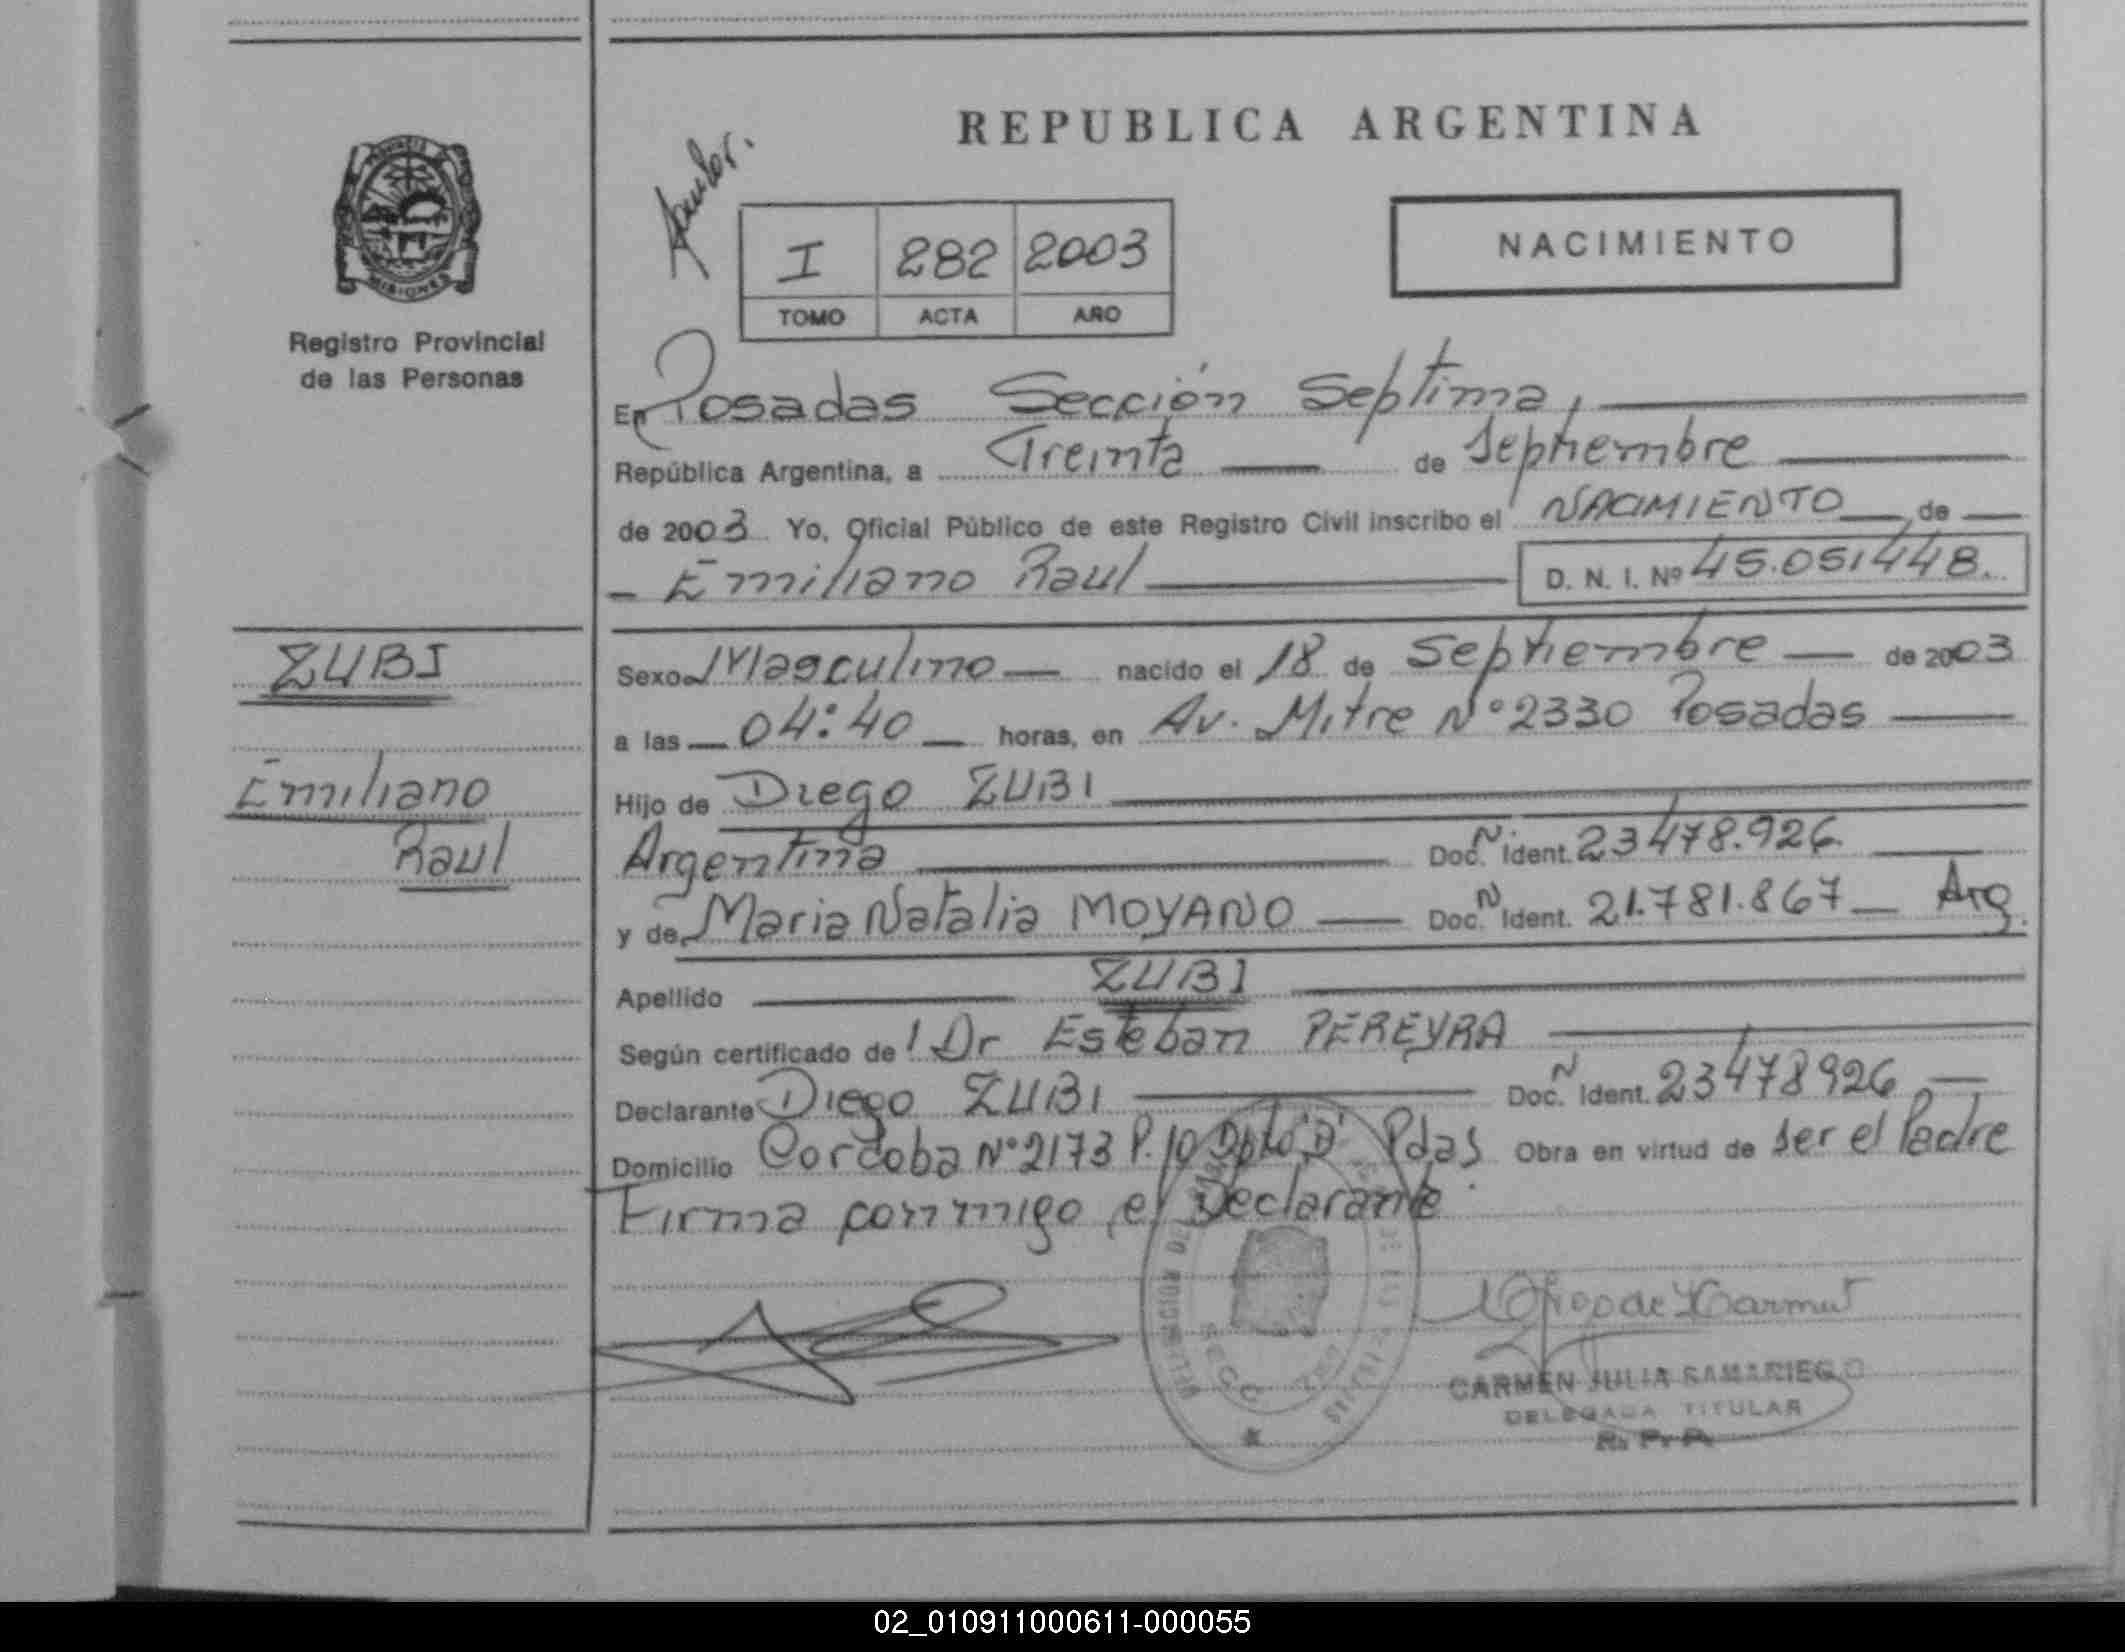 REPUBLICA ARGENTINA
I 282 2003
TOMO ACTA AÑO
NACIMIENTO
MISIONES
Registro Provincial
de las Personas
En Posadas Sección Septima,
República Argentina, a Treinta de Septiembre
de 2003 Yo, Oficial Público de este Registro Civil inscribo el NACIMIENTO de
Emiliano Raul D. N. I. Nº 45.051448.
ZUBI
Emiliano
Raul
Sexo Masculino nacido el 18 de Septiembre de 2003
a las 04:40 horas, en Av. Mitre Nº 2330 Posadas
Hijo de Diego ZUBI
Argentina Doc. N Ident. 23478.926
y de Maria Natalia MOYANO Doc. N Ident. 21.781.867 Arg.
Apellido ZUBI
Según certificado de Dr Esteban PEREYRA
Declarante Diego ZUBI Doc. N Ident. 23478926
Domicilio Cordoba Nº 2173 P. 10 Dpto Pdas Obra en virtud de ser el Padre
Firma conmigo el Declarante
CARMEN JULIA SAMARIEGO
DELEGADA TITULAR
R. P. P.
02_010911000611-000055